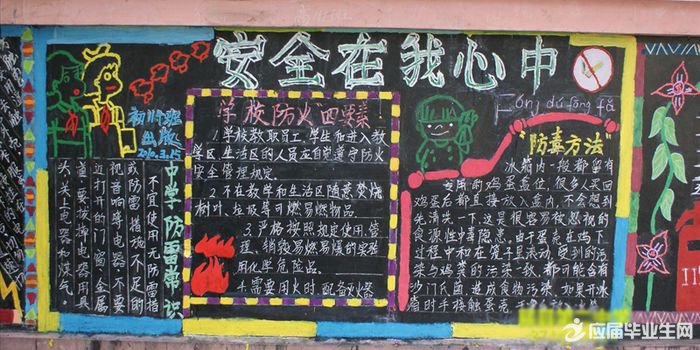 安全在我心中
初119班
出版
2010.3.25
中学防雷常识
不宜使用无防雷措
或防雷措施不足的
电视音响等电器不要
靠近打开的门窗金属
管道要拔掉电器用具
插头关上电器和煤气。
学校防火"四要素!
1.学校教职员工,学生和进入教
学区、生活区的人员应自觉遵守防火
安全管理规定。
2.不在教学和生活区随意焚烧
树叶、垃圾等可燃易燃物品。
3.严格按照规定使用、管
理、销毁易燃易爆的实验
用化学危险品。
4.需要用火时,配备灭火器
Fáng dú fāng fǎ
"防毒方法"
冰箱内一般都留有
专用的鸡蛋盖位,很多人买回
鸡蛋后都直接放入盖内,不会想到
先清洗一下,这是很容易被忽视的
食源性中毒隐患。由于蛋壳在鸡下
过程中和在筐子里滚动,受到的污
染与鸡粪的污染一致,都可能含有
沙门氏菌,造成食物污染。如果开冰
箱时手接触蛋壳
应届毕业生网